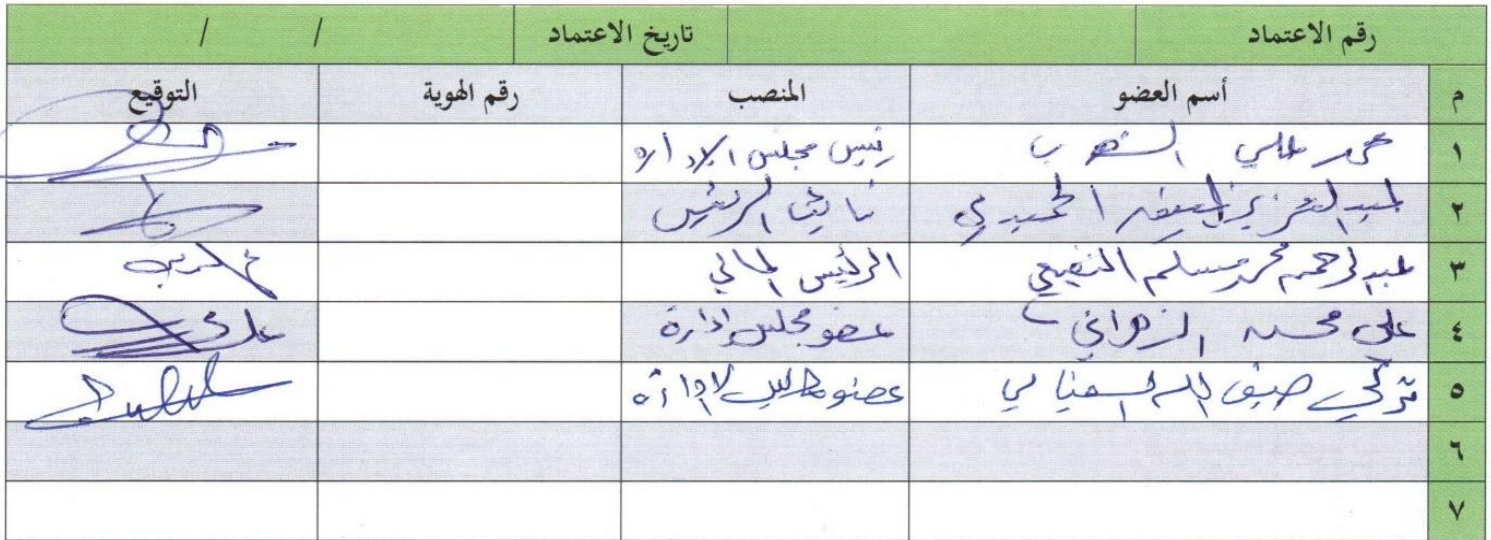 رقم الاعتماد تاريخ الاعتماد / /
م أسم العضو المنصب رقم الهوية التوقيع
١ محمد علي رئيس مجلس الاداره
٢ عبدالعزيز الحميدي نايب الرئيس
٣ عبدالرحمن محمد مسلم النفيعي الرئيس المالي
٤ علي محسن الزهراني عضو مجلس ادارة
٥ تركي ضيف الله السفياني عضو مجلس الادارة
٦
٧